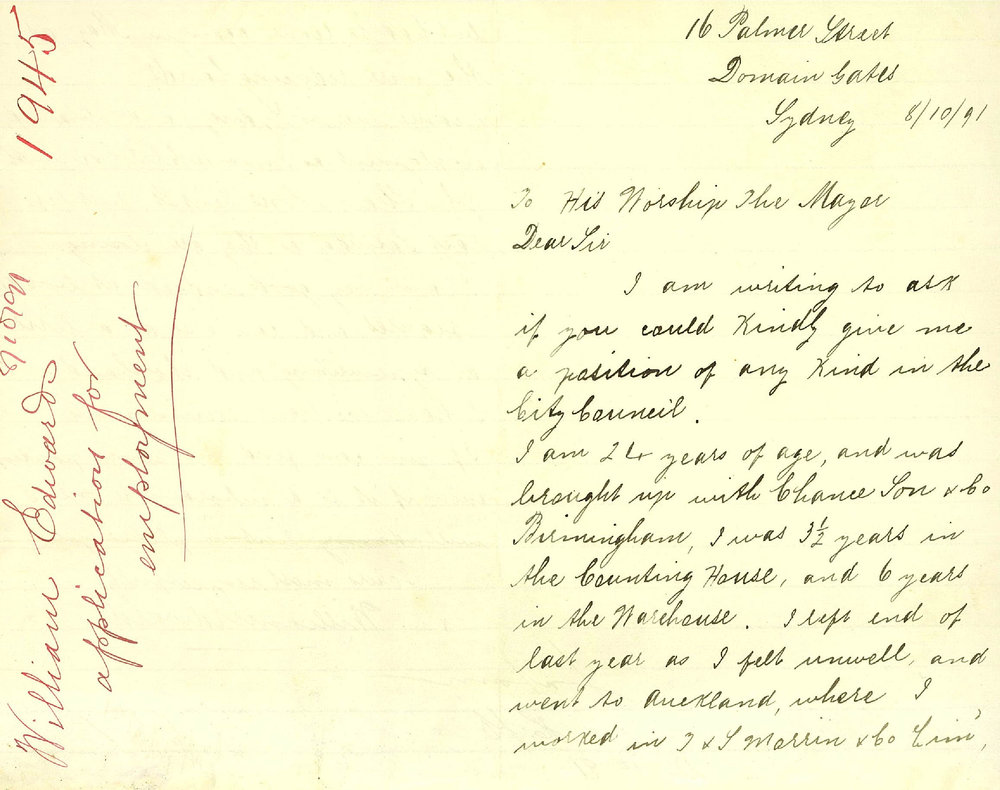 1945
8/10/91
William Edwards
application for
employment
16 Palmer Street
Domain Gates
Sydney 8/10/91
To His Worship The Mayor
Dear Sir
I am writing to ask
if you could kindly give me
a position of any kind in the
City Council.
I am 24 years of age, and was
brought up with Chance Son & Co
Birmingham, I was 3½ years in
the Counting House, and 6 years
in the Warehouse. I left end of
last year as I felt unwell, and
went to Auckland, where I
worked in T & S Morrin & Co Lim',